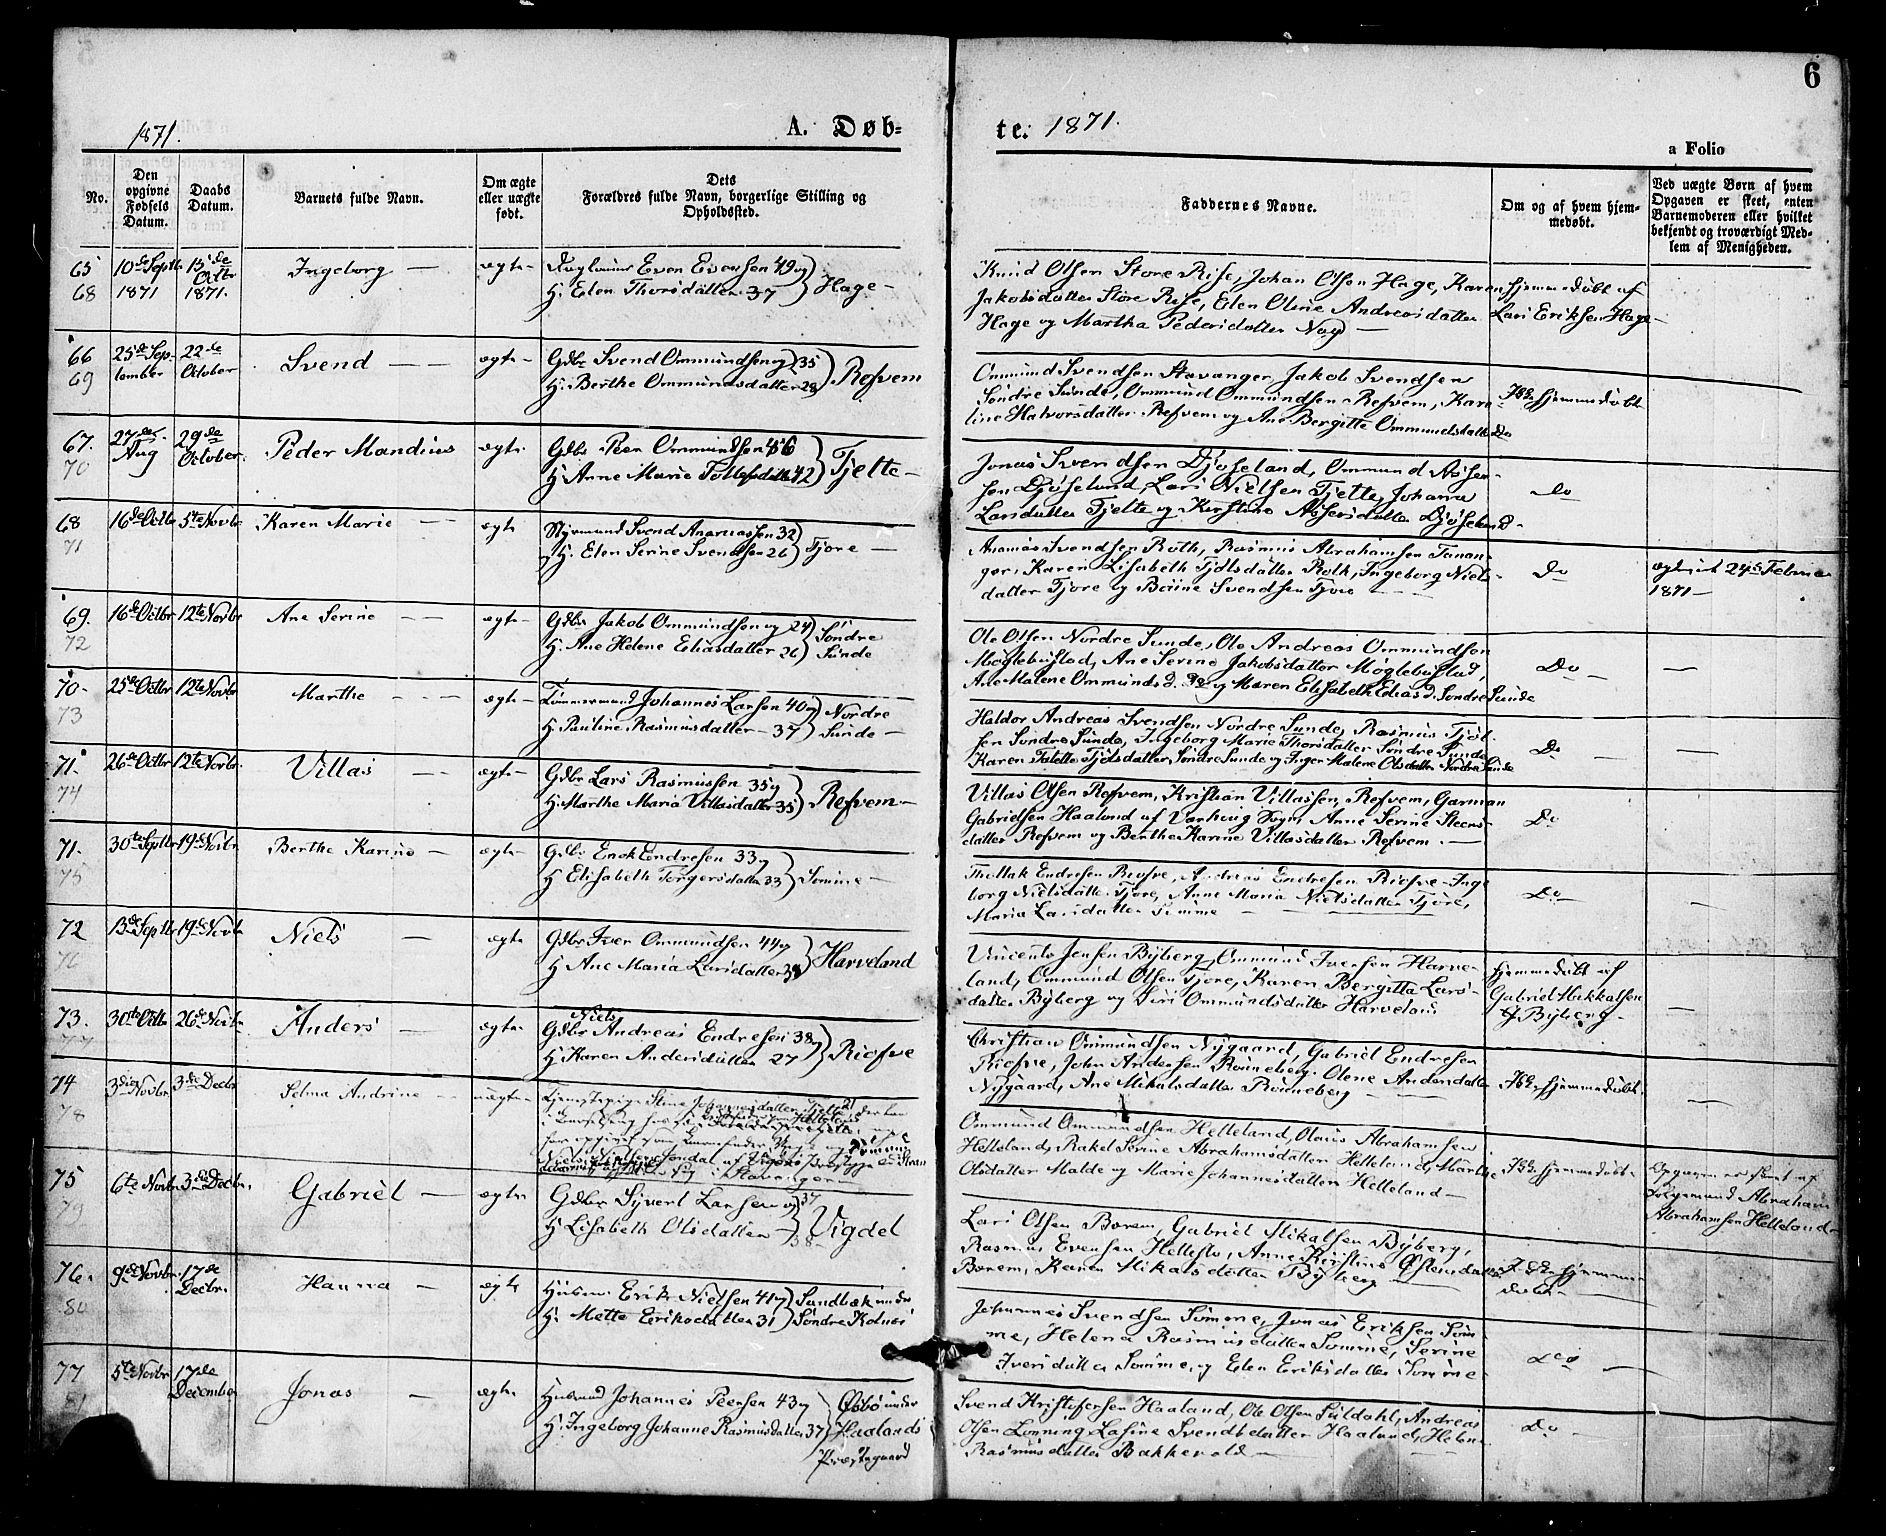 6
1871.
A. Døb-
te. 1871.
a Folio
No.
Den opgivne Fødsels Datum.
Daabs Datum.
Barnets fulde Navn.
Om ægte eller uægte født.
Dets Forældres fulde Navn, borgerlige Stilling og Opholdssted.
Faddernes Navne.
Om og af hvem hjemmedøbt.
Ved uægte Børn af hvem Opgaven er skeet, enten Barnemoderen eller hvilket bekjendt og troværdigt Medlem af Menigheden.
65
68
10de Septbr
1871
15de
Octbr
1871.
Ingeborg
ægte
Even Evensen 49 og
H. Elen Thorsdatter 37
Hage
Knud Olsen Store Rise, Johan Olsen Hage, Karen
Jakobsdatter Store Rise, Elen Oline Andreasdatter
Hage og Martha Pedersdatter
Hjemmedøbt af
Lars Eriksen Hage
66
69
25de Sep-
tember
22de
October
Svend
ægte
Gdbr Svend Ommundsen og 35
H. Berthe Ommundsdatter 28
Refvem
Ommund Svendsen Stavanger, Jakob Svendsen
Søndre Sunde, Ommund Ommundsen Refvem, Karo-
line Halvorsdatter Refvem og Ane Bergitte Ommundsdatter Do
Ikke hjemmedøbt
67.
70
27de
Aug
29de
October
Peder Mandius
ægte
Gdbr Peer Ommundsen 46
H. Anne Marie Tollefsdatter 42
Tjelte
Jonas Svendsen Djøseland, Ommund Asser-
sen Djøseland, Lars Nielsen Tjelte, Johanna
Larsdatter Tjelte og Kirstine Assersdatter Djøseland
Do
68
71
16de Octbr
5te Novbr
Karen Marie
ægte
Styrmand Svend Ananiassen 32
og H. Elen Serine Svendsen 26
Tjore
Ananias Svendsen Roth, Rasmus Abrahamsen Tanan-
ger, Karen Lisabeth Tjølsdatter Roth, Ingeborg Niels-
datter Tjore og Svendsen Tjore
Do
ægteviet 24de Februar
1871
69.
72
16de Octbr
12te Novbr
Ane Serine
ægte
Gdbr Jakob Ommundsen og 24
H. Ane Helene Eliasdatter 26
Søndre
Sunde
Ole Olsen Nordre Sunde, Ole Andreas Ommundsen
Møglebustad, Ane Serine Jakobsdatter Møglebustad,
Ane Malene Ommundsd. Do og Maren Elisabeth Eliasd. Søndre Sunde
Do
70
73
25de Octbr
12te Novbr
Marthe
ægte
Tømmermand Johannes Larsen 40 og
H. Pauline Rasmusdatter 37
Nordre
Sunde
Haldor Andreas Svendsen Nordre Sunde, Rasmus Tjøl-
sen Søndre Sunde, Ingeborg Marie Thorsdatter Søndre Sunde
Karen Talette Tjølsdatter Søndre Sunde og Inger Malene Olsdatter Nordre Sunde
Do
71.
74
26de Octbr
12te Novbr.
Villas
ægte
Gdbr Lars Rasmussen 35 og
H. Marthe Maria Villasdatter 35
Refvem
Villas Olsen Refvem, Kristian Villassen Refvem, Garman
Gabrielsen Haaland af Varhoug Sogn, Anne Serine Steens-
datter Refvem og Berthe Karine Villasdatter Refvem.
Do
71.
75
30te Septbr
19de Novbr.
Berthe Karine
ægte
Gdbr Enok Endresen 33 og
H. Elisabeth Torgersdatter 33
Sømme
Endresen Riefve, Andreas Endresen Riefve, Inge-
borg Nielsdatter Tjore, Anne Maria Nielsdatter Tjore,
Maria Larsdatter Sømme
Do
72
76
13de Septbr
19de Novbr
Niels
ægte
Gdbr Iver Ommundsen 44 og
H. Ane Maria Larsdatter
Harveland
Jensen Byberg, Ommund Iversen Harve-
land, Ommund Olsen Tjore, Karen Bergitta Lars-
datter Byberg og Siri Ommundsdatter Harveland
Hjemmedøbt af
Gabriel Mikkalsen
Byberg
73.
77
30te Octbr
26de Novbr.
Anders
ægte
Niels
Gdbr Andreas Endresen 38 og
H. Karen Andersdatter 27
Riefve
Christian Ommundsen Nygaard, Gabriel Endresen
Riefve, John Andersen Rønneberg, Olene Andersdatter
Nygaard, Ane Mikalsdatter Rønneberg
Ikke hjemmedøbt.
74
78
3die Novbr.
3die Decbr
Selma Andrine
uægte
Tjenestepige Stine Johannesdatter Tjelte
Stavanger
Ommund Ommundsen Helleland, Olaus Abrahamsen
Helleland, Rakel Serine Abrahamsdatter Helleland, Marthe
Olsdatter Malde og Marie Johannesdatter Helleland
Ikke hjemmedøbt
Opgaven er skeet af
Abraham
Abrahamsen Helleland
75
79
6te Novbr.
3die Decbr.
Gabriel
ægte
Gdbr Syvert Larsen og 37
H. Lisabeth Olsdatter 38
Vigdel
Lars Olsen Borem, Gabriel Mikalsen Byberg,
Rasmus Evensen Hellestø, Anne Kirstine Østensdatter
Borem, Karen Mikalsdatter Byberg
Ikke hjemme-
døbt
76.
80
9de Novbr.
17de
Decbr.
Hanna
ægte
Husm. Erik Nielsen 41 og
H. Mette Eriksdatter 31
Sandbæk under
Søndre Kolnes
Johannes Svendsen Sømme, Jonas Eriksen Søm-
me, Helena Rasmusdatter Sømme, Serine
Iversdatter Sømme og Elen Eriksdatter Sømme
Do
77
81
5te Novbr
17de
December
Jonas
ægte
Husmand Johannes Peersen 43 og
H. Ingeborg Johanne Rasmusdatter 37
Øsbø under
Haalands
Præstegaard
Svend Kristofersen Haaland, Ole Olsen Suldahl, Andreas
Olsen Lønning, Lasine Svendsdatter Haaland, Helene
Rasmusdatter Bakkevold
Do